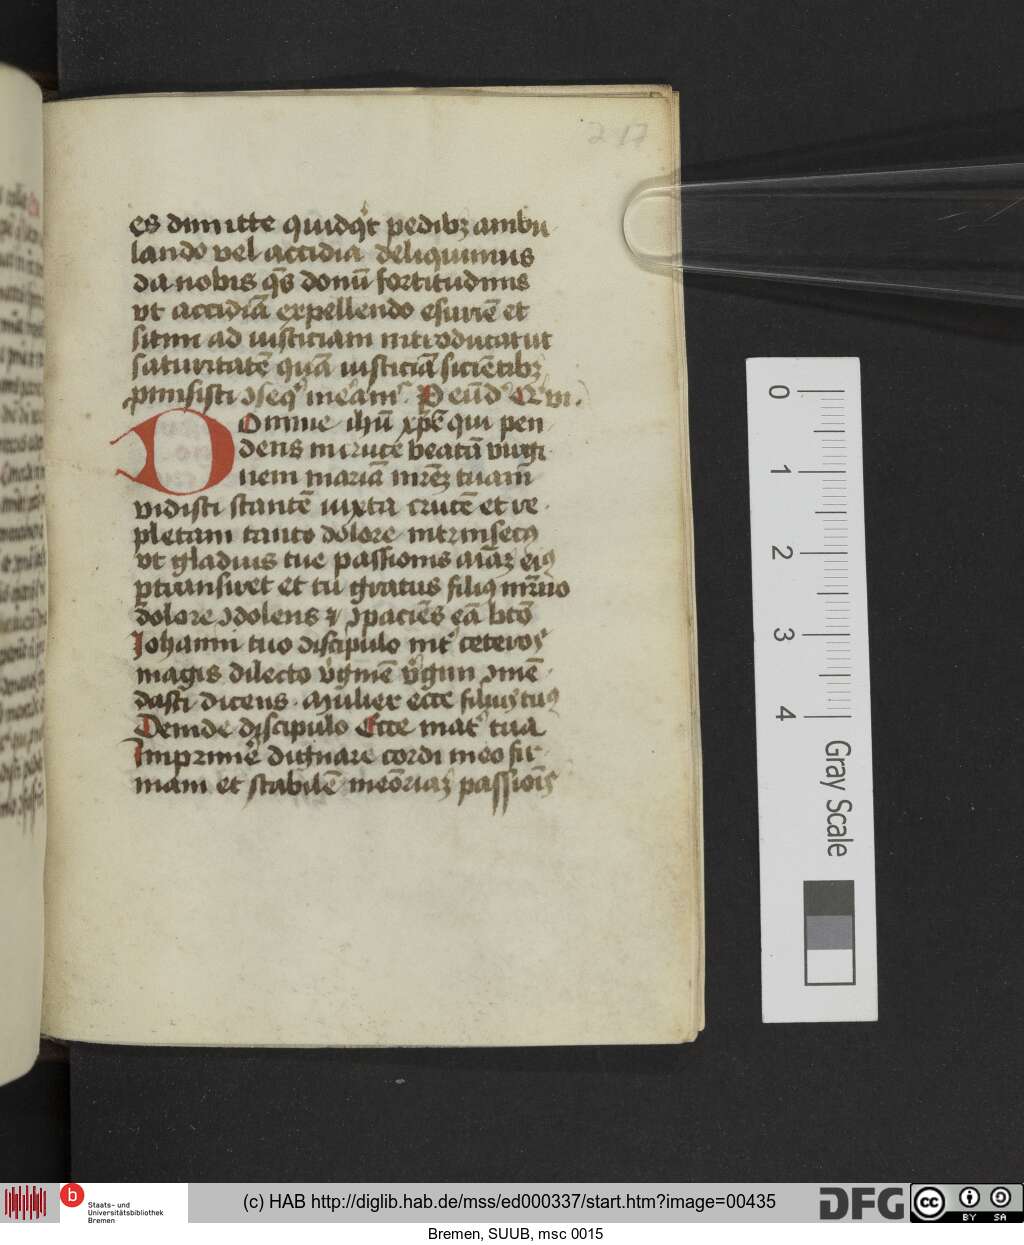 217
es dimitte quidqͥt pedibꝫ ambu
lando vel accidia deliquimus
da nobis q̄s donū fortitudinis
vt accidiā expellendo esuriē et
sitim ad iusticiam introducatut
saturitatē quā iusticiā siciētibꝫ
pmisisti ꝯseqͥ meamͬ. P eūdͤ Qr vi.
Domine ihū xp̄e qui pen
dens in cruce beatā virgi
nem mariā mr̄eꝫ tuam
vidisti stantē iuxta crucē et re
pletam tanto dolore intrinsecꝰ
vt gladius tue passionis aīaꝫ eiꝰ
ptransiret et tu gratus filiꝰ mr̄no
dolore ꝯdolens & ꝯpaciēs eā bt̄o
Johanni tuo discipulo intͤ ceteros
magis dilecto v̓ginē v̓gini ꝯmē
dasti dicens Mulier ecce filius tuꝰ
Deinde discipulo Ecce matͤ tua
Imprimͤe dignare cordi meo fir
mam et stabilē meōriaꝫ passiōis
0
1
2
3
4
Gray Scale
b
Staats- und
Universitätsbibliothek
Bremen
(c) HAB http://diglib.hab.de/mss/ed000337/start.htm?image=00435
DFG
cc BY SA
Bremen, SUUB, msc 0015